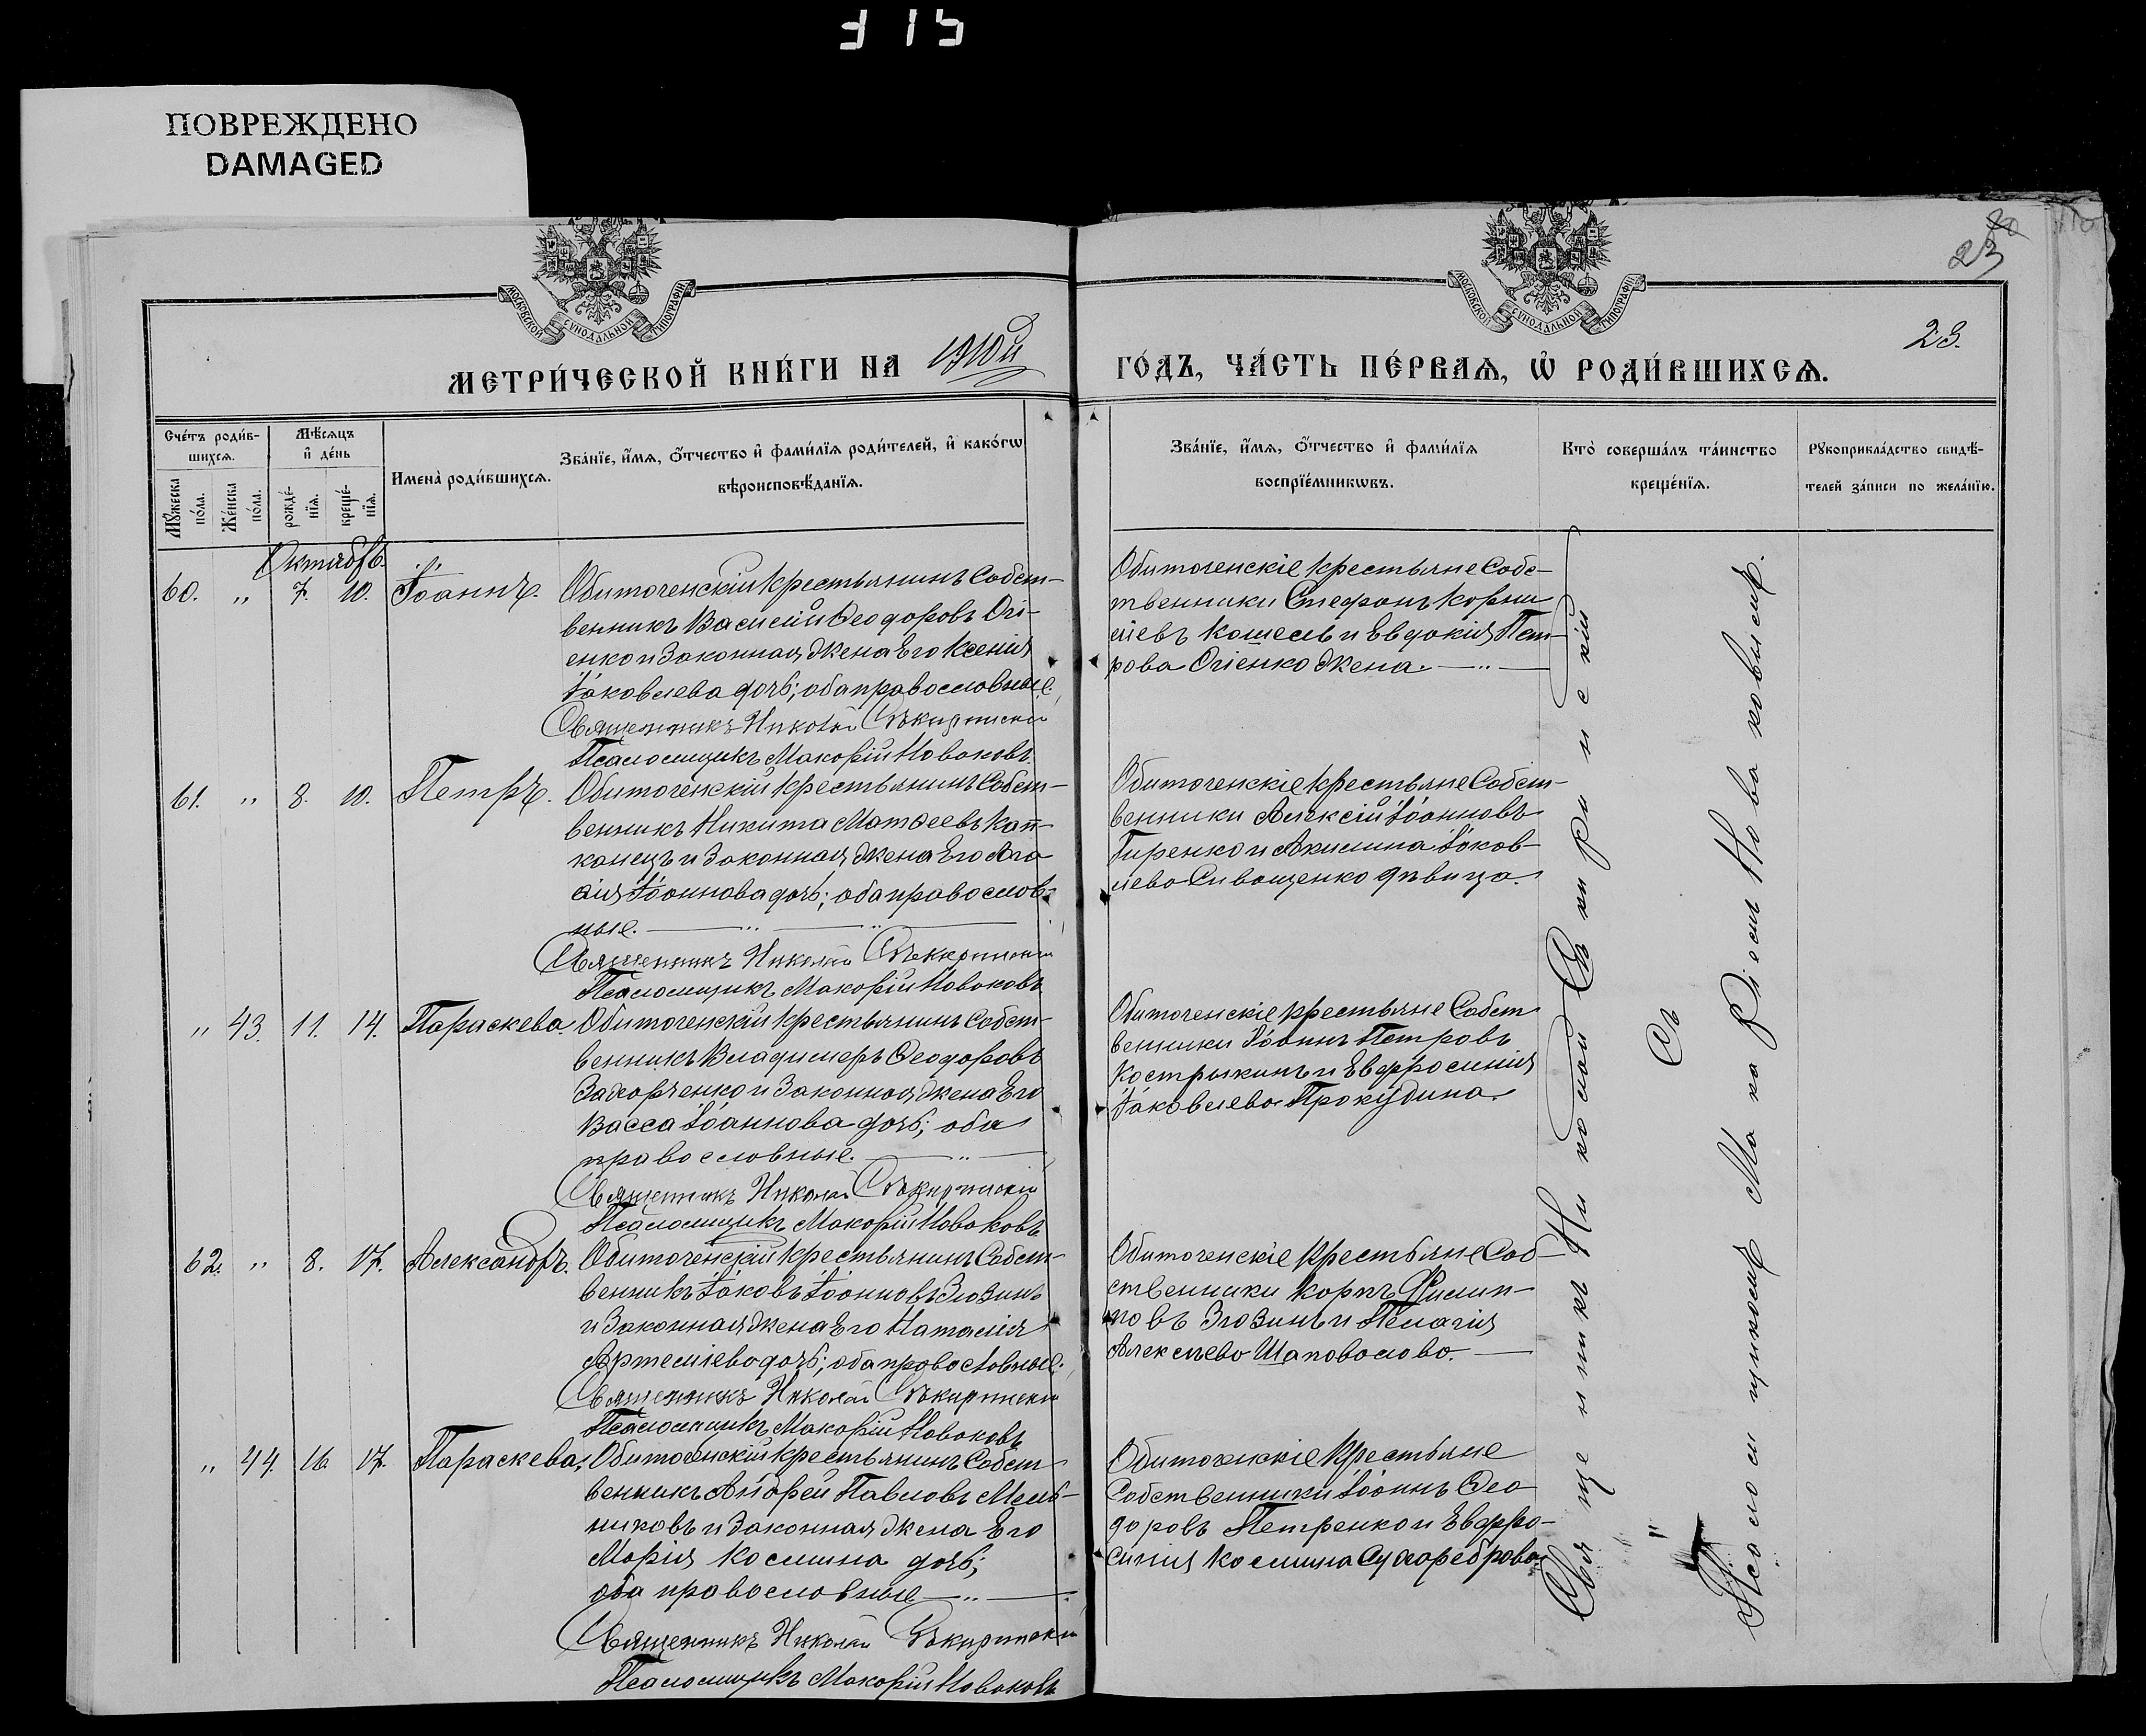 315
ПОВРЕЖДЕНО
DAMAGED
МОСКОВСКОЙ СѴНОДАЛЬНОЙ ТИПОГРАФІИ
МОСКОВСКОЙ СѴНОДАЛЬНОЙ ТИПОГРАФІИ
23
23.
МЕТРИ́ЧЕСКОЙ КНИ́ГИ НА 1910й ГО́ДЪ, ЧА́СТЬ ПЕ́РВАѦ, Ѽ РОДИ́ВШИХСѦ.
Сче́тъ роди́в-
шихсѧ.
Мꙋ́жеска
по́ла.
Же́нска
по́ла.
Мѣ́сѧцъ
и҆ де́нь
рожде́-
нїѧ.
креще́-
нїѧ.
Имена̀ роди́вшихсѧ.
Зва́нїе, и҆́мѧ, ѻ҆́тчество и҆ фами́лїѧ роди́телей, и҆ како́гѡ
вѣроисповѣ́данїѧ.
Зва́нїе, и҆́мѧ, ѻ҆́тчество и҆ фами́лїѧ
воспрїе́мникѡвъ.
Кто̀ соверша́лъ та́инство
креще́нїѧ.
Рꙋкоприкла́дство свидѣ́-
телей за́писи по жела́нїю.
Октябрь.
60. „ 7. 10. Іоаннъ.
Обиточенскій крестьянинъ Собст-
венникъ Василій Ѳеодоровъ Огі-
енко и Законная Жена Его Ксенія
Іаковлева дочь; оба православные.
Священникъ Николай Сѣкиринскій
Псаломщикъ Макарій Новаковъ
Обиточенскіе крестьяне Собс-
твенники Стефанъ Корни
ліевъ Кошель и Евдокія Пет-
рова Огіенко Жена.
61. „ 8. 10. Петръ.
Обиточенскій крестьянинъ Собст-
венникъ Никита Матѳеевъ Кап-
канецъ и Законная Жена Его Ага
ѳія Іоаннова дочь; оба православ-
ные.
Священникъ Николай Сѣкиринскій
Псаломщикъ Макарій Новаковъ
Обиточенскіе крестьяне Собст-
венники Алексій Іоанновъ
Гиренко и Акилина Іаков-
лева Сиващенко дѣвица.
„ 43. 11. 14. Параскева.
Обиточенскій крестьянинъ Собст-
венникъ Владимеръ Ѳеодоровъ
Захарченко и Законная Жена Его
Васса Іоаннова дочь; оба
православные.
Священникъ Николай Сѣкиринскій
Псаломщикъ Макарій Новаковъ
Обиточенскіе крестьяне Собст
венники Іоаннъ Петровъ
Кострыкинъ и Евфросинія
Іаковлева Прокудина.
62. „ 8. 17. Александръ.
Обиточенскій крестьянинъ Собст-
венникъ Іаковъ Іоанновъ Зюзинъ
и Законная Жена Его Наталія
Артеміева дочь; оба православные.
Священникъ Николай Сѣкиринскій
Псаломщикъ Макарій Новаковъ
Обиточенскіе крестьяне Соб-
ственники Карпъ Филип-
повъ Зюзинъ и Пелагія
Алексѣева Шаповалова.
„ 44. 16. 17. Параскева.
Обиточенскій крестьянинъ Собст
венникъ Андрей Павловъ Мель-
никовъ и Законная Жена Его
Марія Космина дочь;
оба православные
Священникъ Николай Сѣкиринскій
Псаломщикъ Макарій Новаковъ
Обиточенскіе Крестьяне
Собственники Іоаннъ Ѳео
доровъ Петренко и Евфро-
синія Космина Сухореброва
Священникъ Николай Сѣкиринскій
Съ
Псаломщикомъ Макаріемъ Новаковымъ.